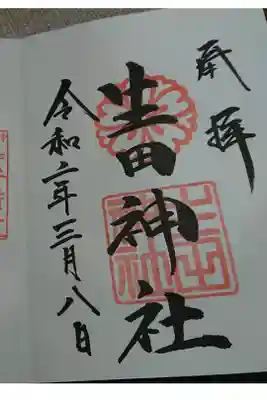 奉拝
生田神社
令和二年三月八日